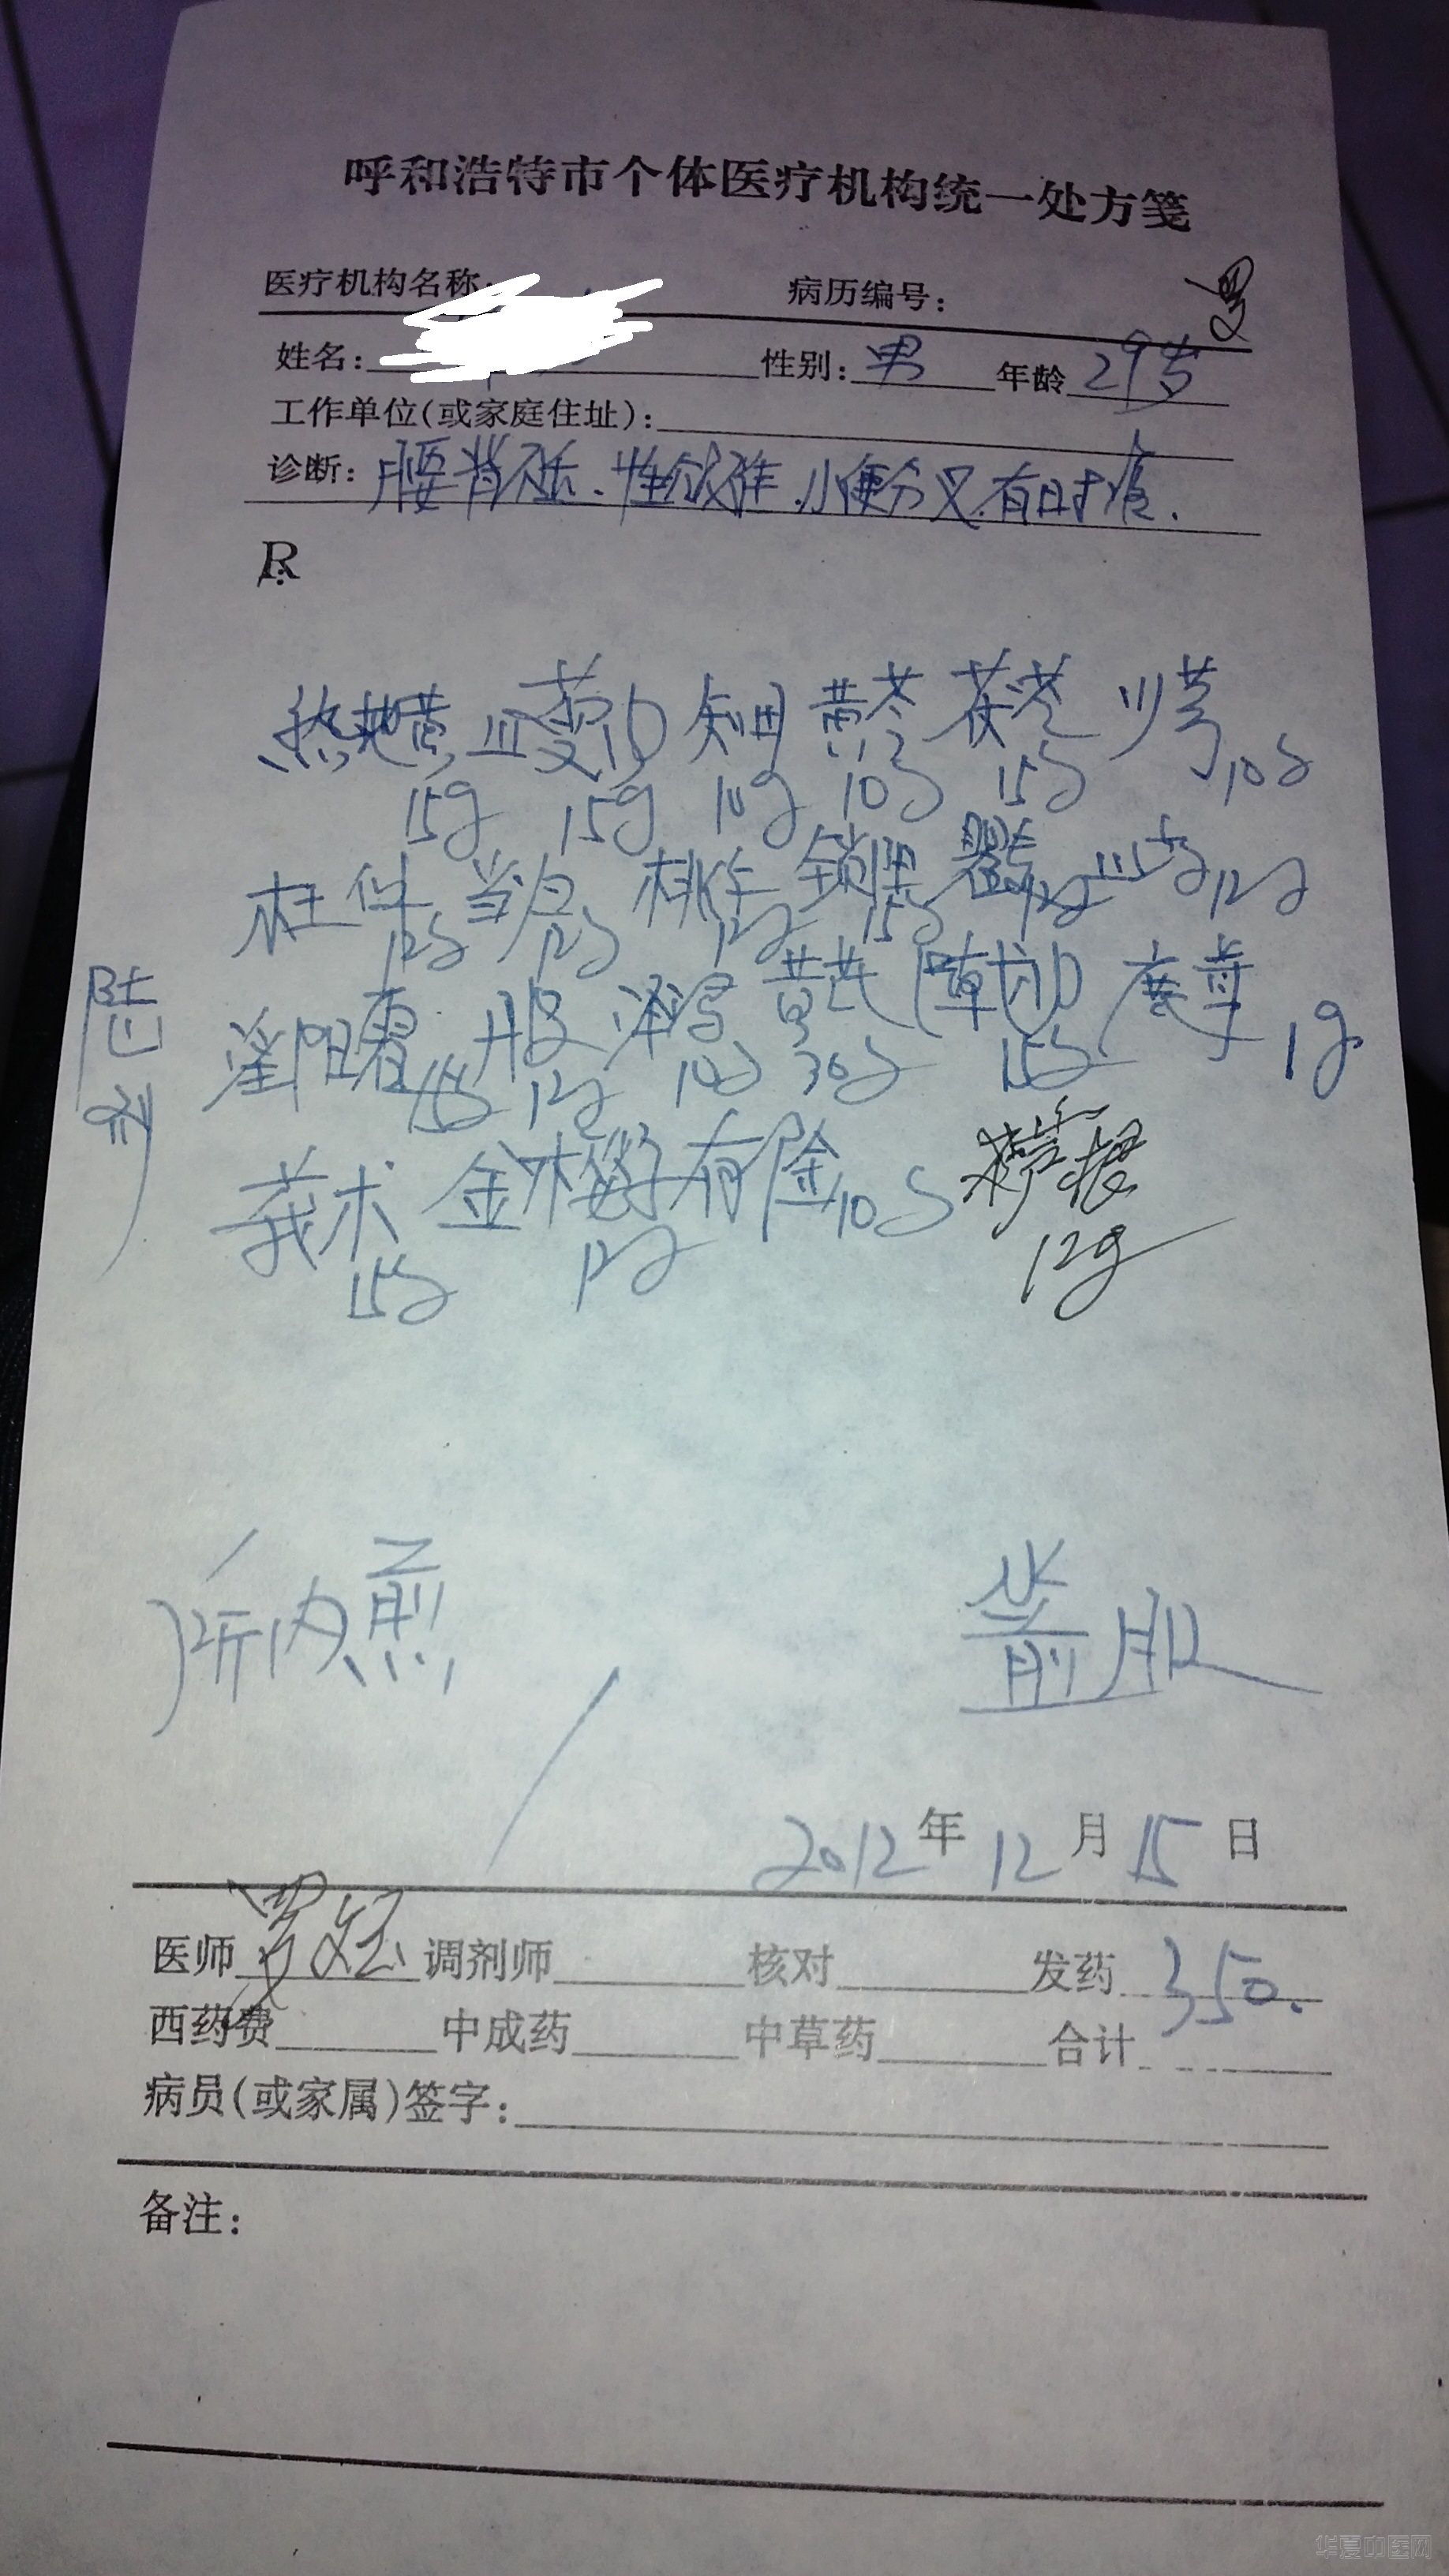 呼和浩特市个体医疗机构统一处方笺
医疗机构名称: 病历编号:
姓名: 性别: 男 年龄 29岁
工作单位(或家庭住址):
诊断: 腰背 . 小便分叉.有时痛.
R:
熟地黄 山萸肉 知母 黄芩 茯苓 川芎 10g
15g 15g 10g 10g 15g
杜仲 当归 桃仁 锁阳 山药 12g
12g 12g 12g 15g 12g
淫阳藿 丹皮 泽泻 黄芪 鹿茸 1g
15g 12g 10g 30g 15g
莪术 金樱子 10g
15g 12g 12g
陆剂
所内煎 煎服
2012年12月15日
医师 调剂师 核对 发药 350.
西药费 中成药 中草药 合计
病员(或家属)签字:
备注:
华夏中医网